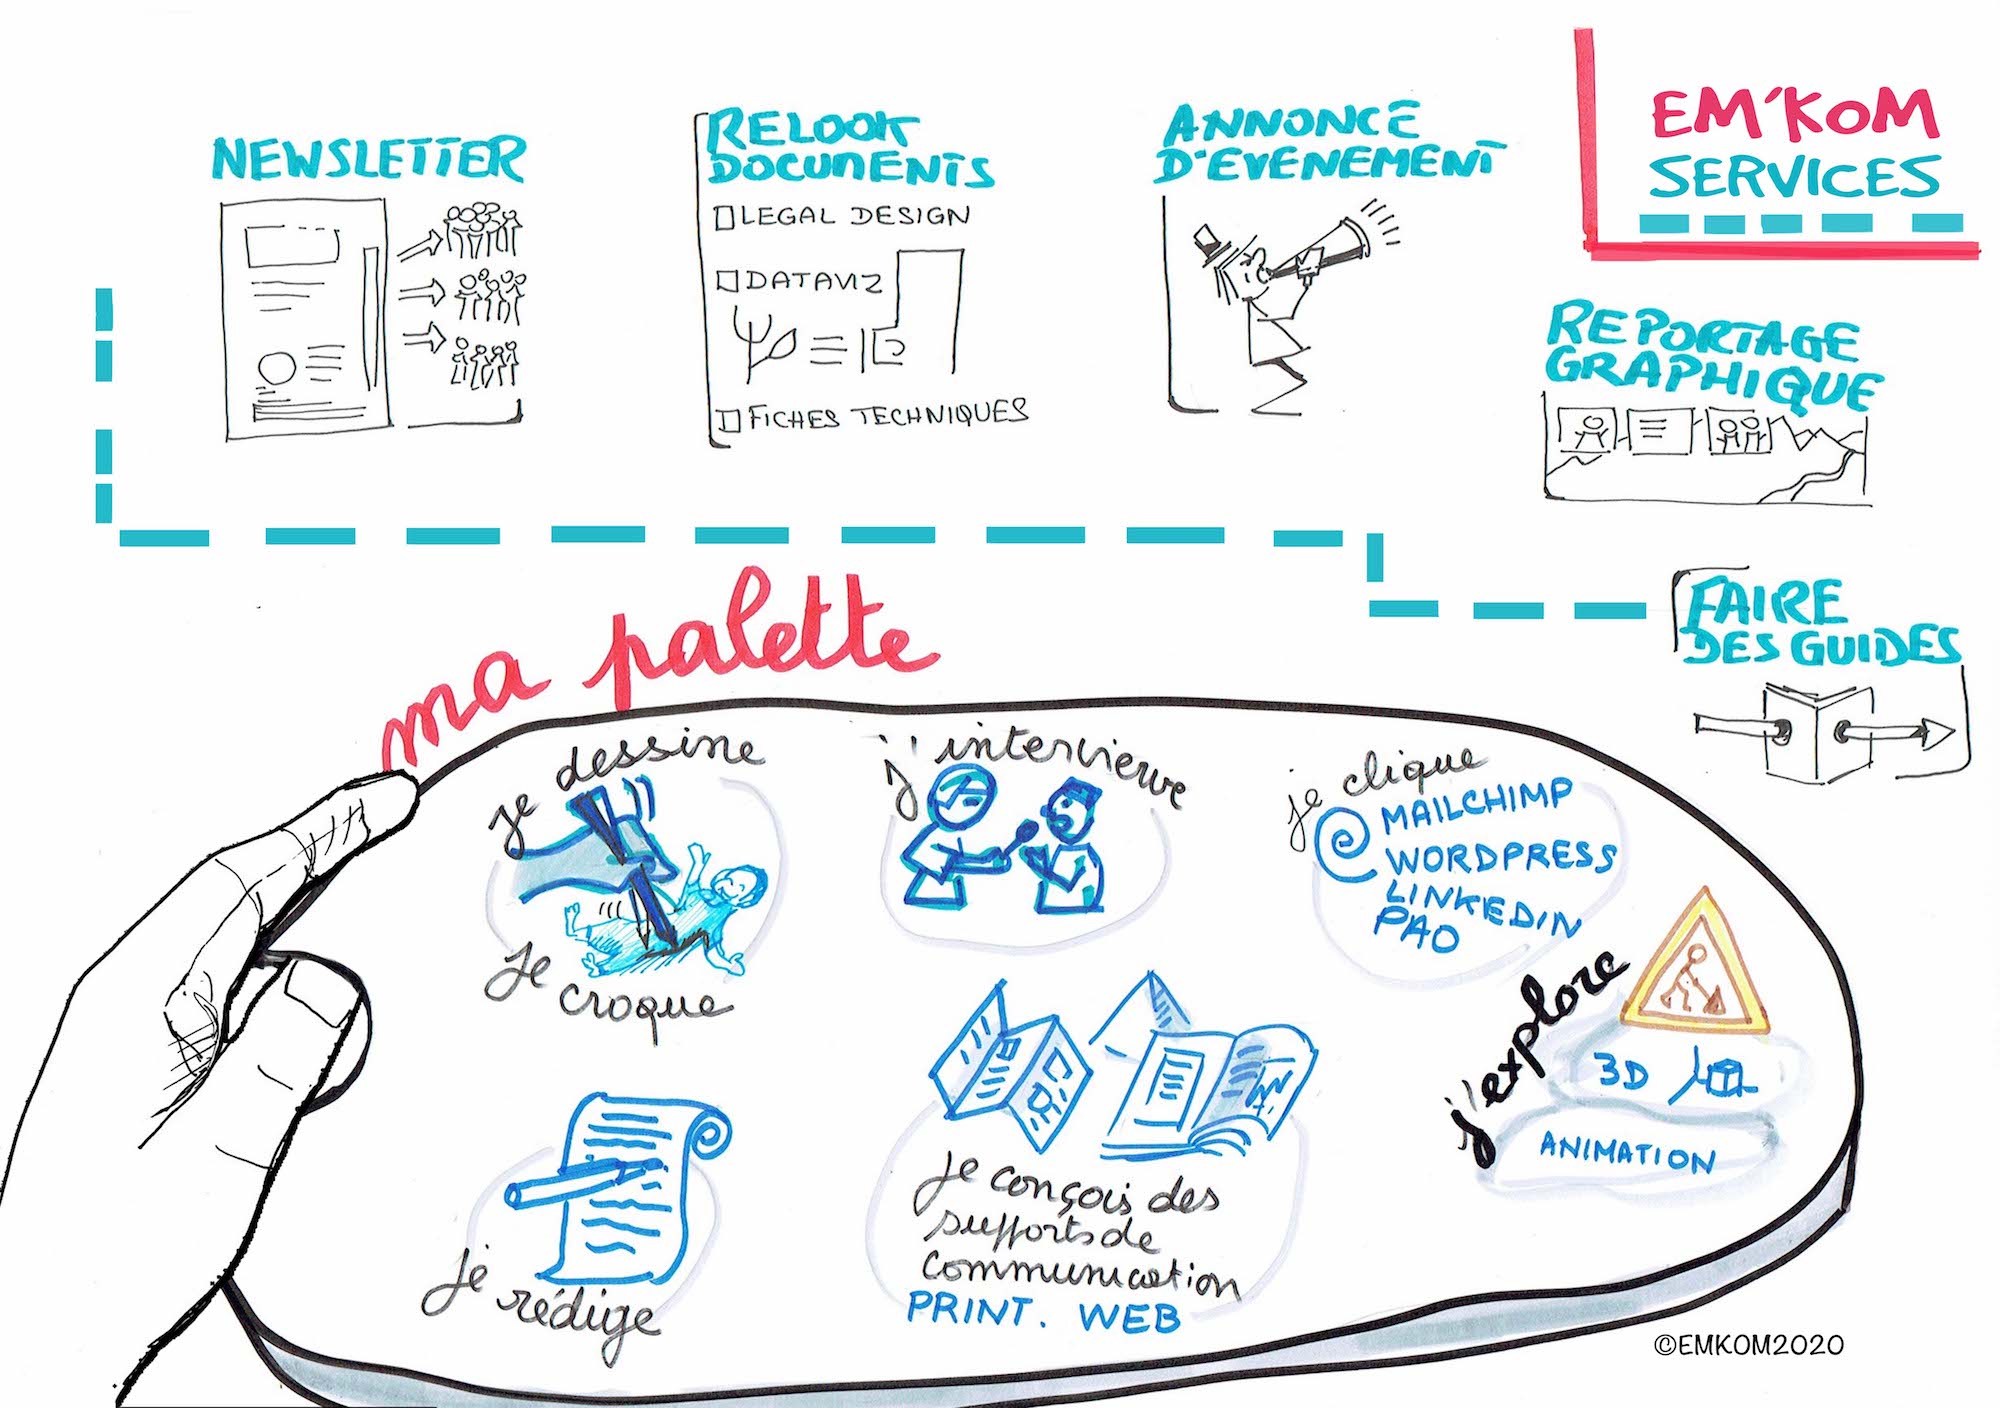 EM'KOM
SERVICES
NEWSLETTER
RELOOK
DOCUMENTS
LEGAL DESIGN
DATAVIZ
FICHES TECHNIQUES
ANNONCE
D'EVENEMENT
REPORTAGE
GRAPHIQUE
FAIRE
DES GUIDES
ma palette
je dessine
Je croque
j'interviewe
je clique
MAILCHIMP
WORDPRESS
LINKEDIN
PAO
j'explore
3D
ANIMATION
je rédige
je conçois des
supports de
communication
PRINT. WEB
©EMKOM2020